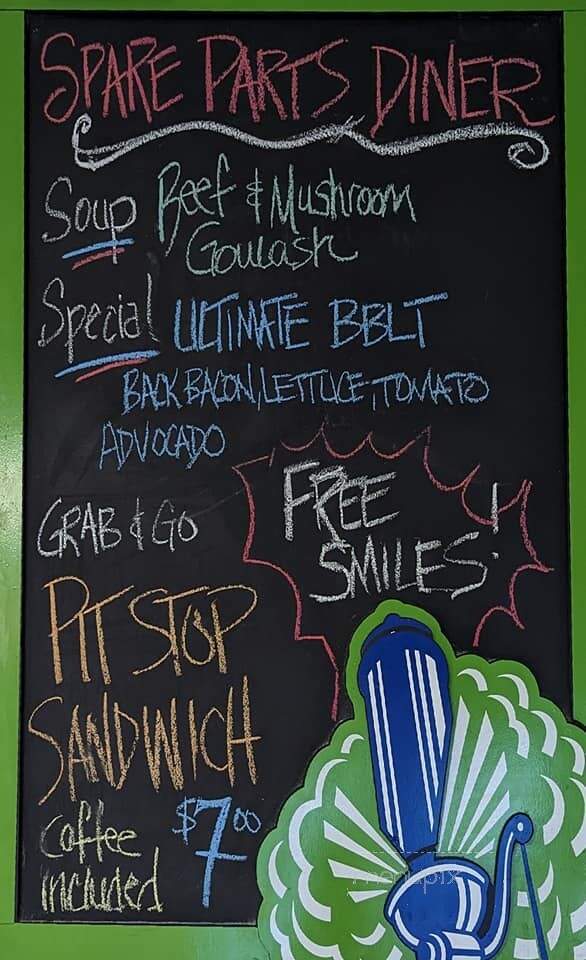 SPARE PARTS DINER
Soup Beef & Mushroom
Goulash
Special ULTIMATE BBLT
BACK BACON, LETTUCE, TOMATO
ADVOCADO
GRAB & GO
FREE
SMILES!
PIT STOP
SANDWICH
coffee
included
$7.00
menupix